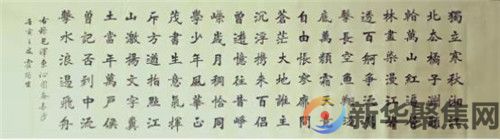 獨立寒秋湘江
北去橘子洲頭
看萬山紅遍層
林盡染漫江碧
透百舸爭流鷹
擊長空魚翔淺
底萬類霜天競
自由悵寥廓問
蒼茫大地誰主
沉浮攜來百侶
曾遊憶往昔崢
嶸歲月稠恰同
學少年風華正
茂書生意氣揮
斥方遒指點江
山激揚文字糞
土當年萬戶侯
曾記否到中流
擊水浪遏飛舟
右錄毛澤東沁園春長沙
新华聚焦网